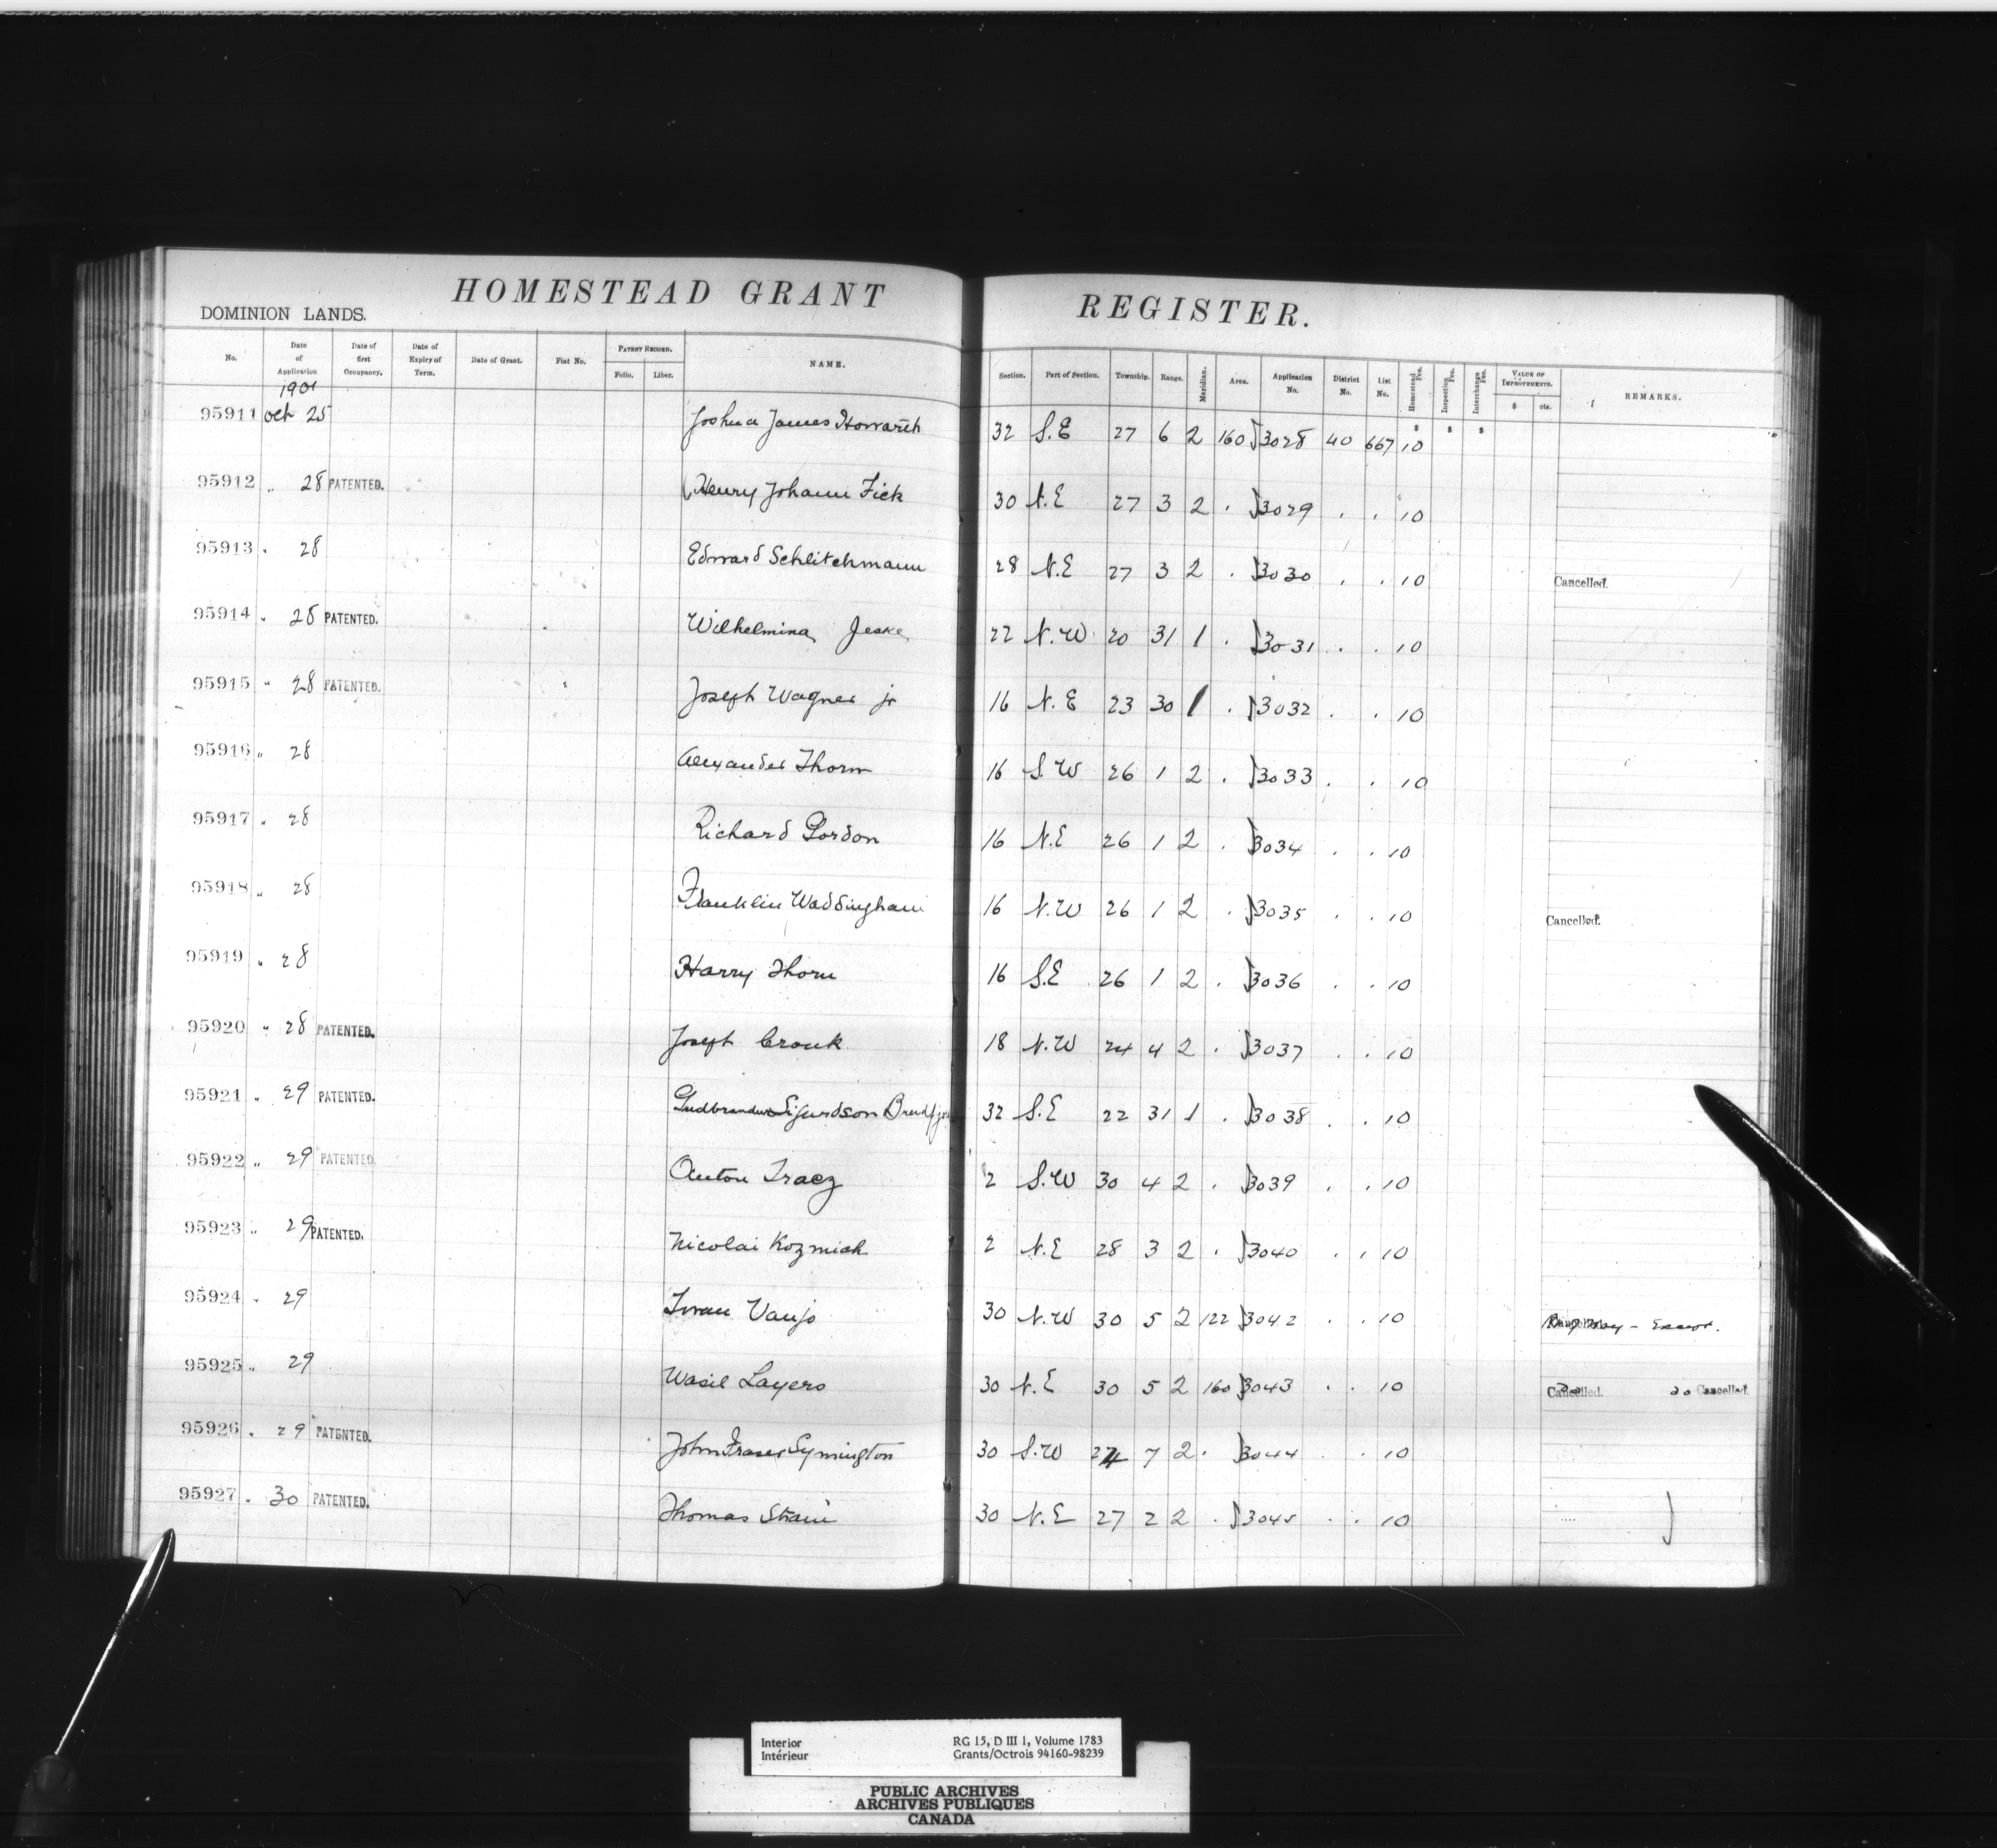 HOMESTEAD GRANT REGISTER.
DOMINION LANDS.
No. Date of Application Date of first Occupancy. Date of Expiry of Term. Date of Grant. Fiat No. PATENT RECORD. Folio. Liber. NAME. Section. Part of Section. Township. Range. Meridian. Area. Application No. District No. List No. Homestead Fee. Inspection Fee. Interchange Fee. VALUE OF IMPROVEMENTS. $ cts. REMARKS.
1901 $ $ $
95911 Oct 25 Joshua James Howarth 32 S.E 27 6 2 160 3028 40 667 10
95912 " 28 PATENTED. Henry Johann Fick 30 N.E 27 3 2 . 3029 . . 10
95913 " 28 Edward Schlitchmann 28 N.E 27 3 2 . 3030 . . 10 Cancelled.
95914 " 28 PATENTED. Wilhelmina Jeske 22 N.W 20 31 1 . 3031 . . 10
95915 " 28 PATENTED. Joseph Wagner jr 16 N.E 23 30 1 . 3032 . . 10
95916 " 28 Alexander Thorn 16 S.W 26 1 2 . 3033 . . 10
95917 " 28 Richard Gordon 16 N.E 26 1 2 . 3034 . . 10
95918 " 28 Franklin Waddingham 16 N.W 26 1 2 . 3035 . . 10 Cancelled.
95919 " 28 Harry Thorn 16 S.E 26 1 2 . 3036 . . 10
95920 " 28 PATENTED. Joseph Cronk 18 N.W 24 4 2 . 3037 . . 10
95921 " 29 PATENTED. Gudbrandur Sigurdson 32 S.E 22 31 1 . 3038 . . 10
95922 " 29 PATENTED. Anton Tracz 2 S.W 30 4 2 . 3039 . . 10
95923 " 29 PATENTED. Nicolai Kozmiak 2 N.E 28 3 2 . 3040 . . 10
95924 " 29 Iwan Vanjo 30 N.W 30 5 2 122 3042 . . 10
95925 " 29 Wasil Layero 30 N.E 30 5 2 160 3043 . . 10 Cancelled. Cancelled.
95926 " 29 PATENTED. John Fraser Symington 30 S.W 24 7 2 . 3044 . 10
95927 " 30 PATENTED. Thomas Strain 30 N.E 27 2 2 . 3045 . . 10
Interior RG 15, D III 1, Volume 1783
Intérieur Grants/Octrois 94160-98239
PUBLIC ARCHIVES
ARCHIVES PUBLIQUES
CANADA